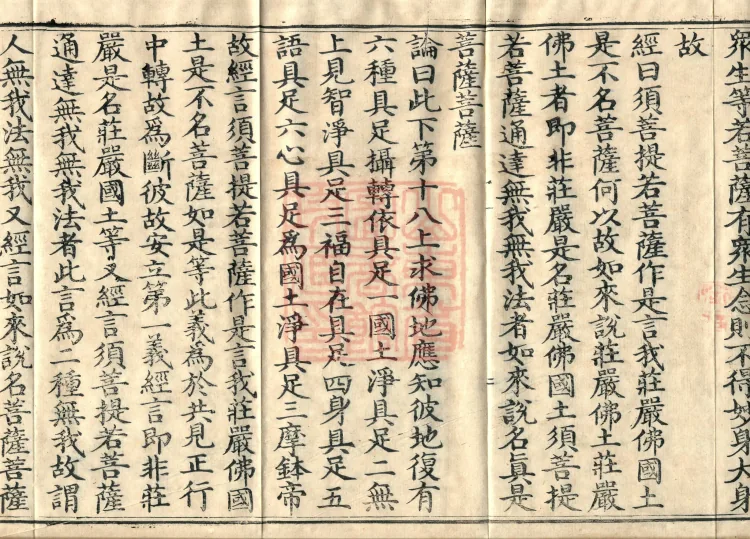 衆生等若菩薩有衆生念則不得妙身大身
故
經曰須菩提若菩薩作是言我莊嚴佛國土
是不名菩薩何以故如來說莊嚴佛土莊嚴
佛土者即非莊嚴是名莊嚴佛國土須菩提
若菩薩通達無我無我法者如來說名眞是
菩薩菩薩
論曰此下第十八上求佛地應知彼地復有
六種具足攝轉依具足一國土淨具足二無
上見智淨具足三福自在具足四身具足五
語具足六心具足爲國土淨具足三摩鉢帝
故經言須菩提若菩薩作是言我莊嚴佛國
土是不名菩薩如是等此義爲於共見正行
中轉故爲斷彼故安立第一義經言即非莊
嚴是名莊嚴國土等又經言須菩提若菩薩
通達無我無我法者此言爲二種無我故謂
人無我法無我又經言如來說名菩薩菩薩